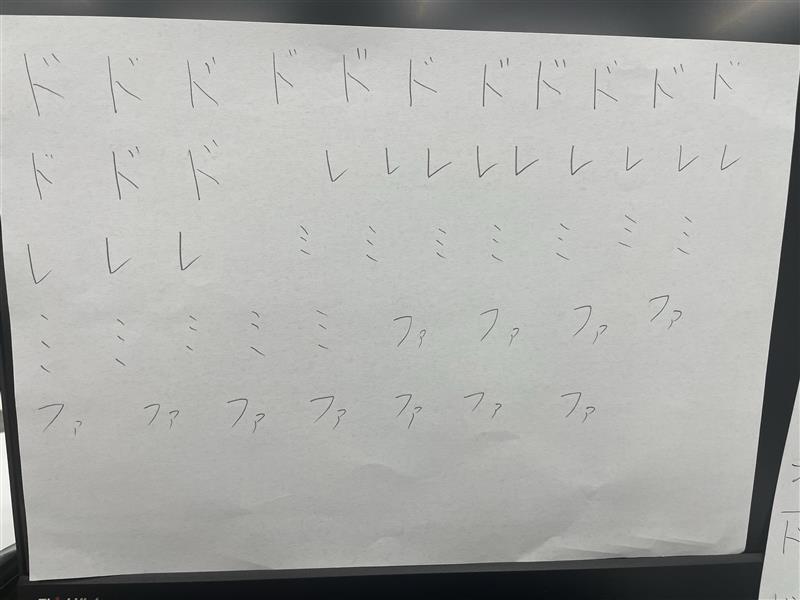 ドドドドドドドドドドド
ドドド レレレレレレレレレ
レレレ ミミミミミミミ
ミミミミミ ファファファファ
ファファファファファファファ